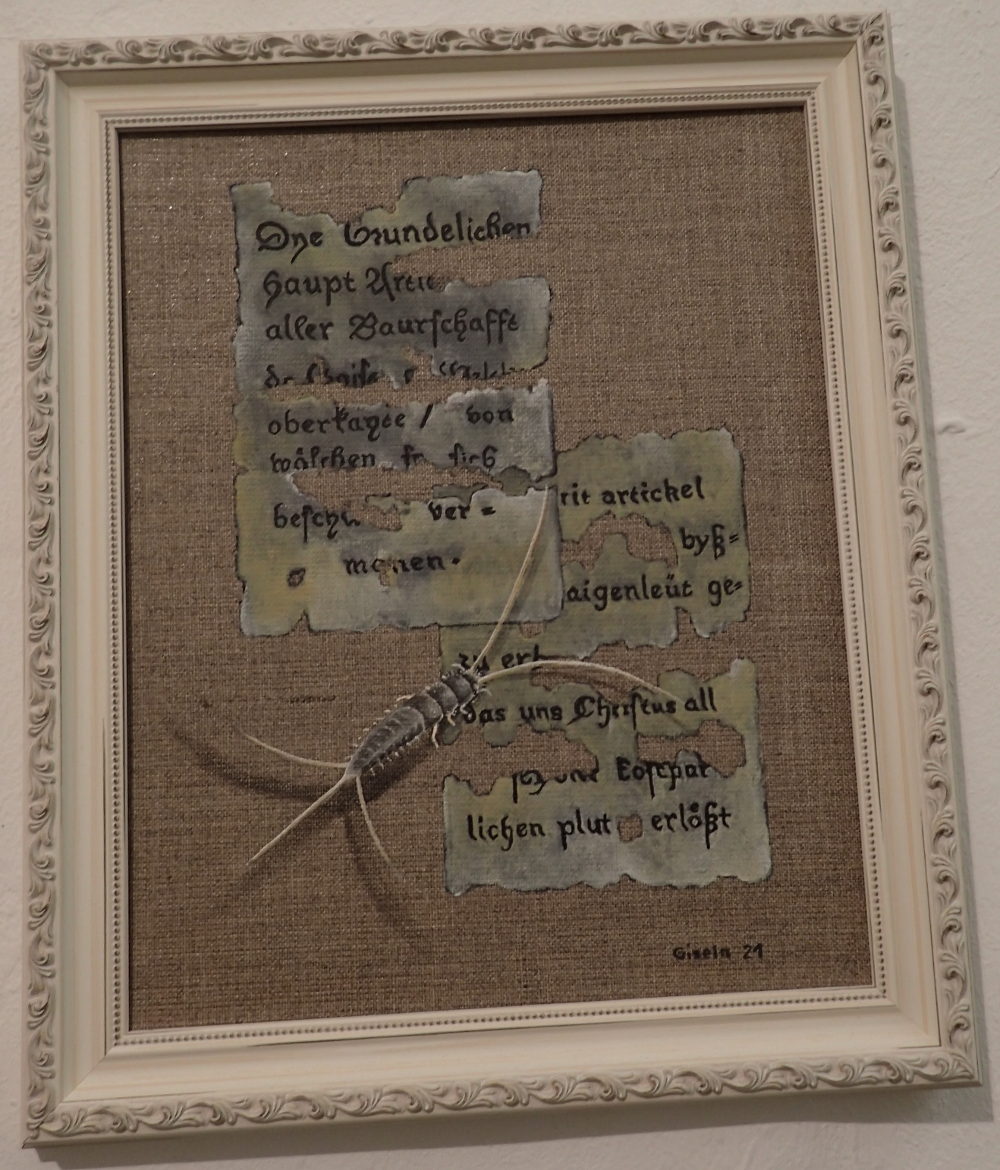 Dye Grundelichen
haupt Arti
aller Baurschafft
oberkayte / von
wölchen sie sich
besch ver=
monen.
rit artickel
byß=
aigenleüt ge=
zu er
das uns Christus all
und kostpar
lichen plut erlößt
Gisela 21